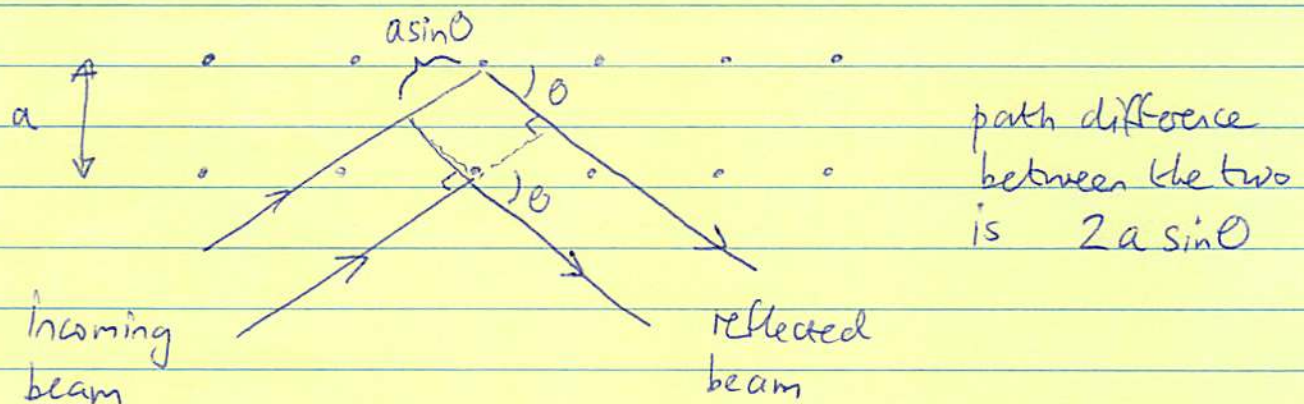 asinθ
a
θ
θ
path difference
between the two
is 2a sinθ
Incoming
beam
reflected
beam